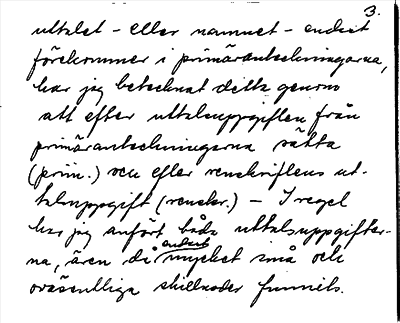 3.
uttalet - eller namnet - endast
förekommer i primäranteckningarna,
har jag betecknat detta genom
att efter uttalsuppgiften från
primäranteckningarna sätta
(prim.) och efter renskriftens ut-
talsuppgift (renskr.) - I regel
har jag anfört båda uttalsuppgifter-
na, även då endast mycket små och
oväsentliga skillnader funnits.